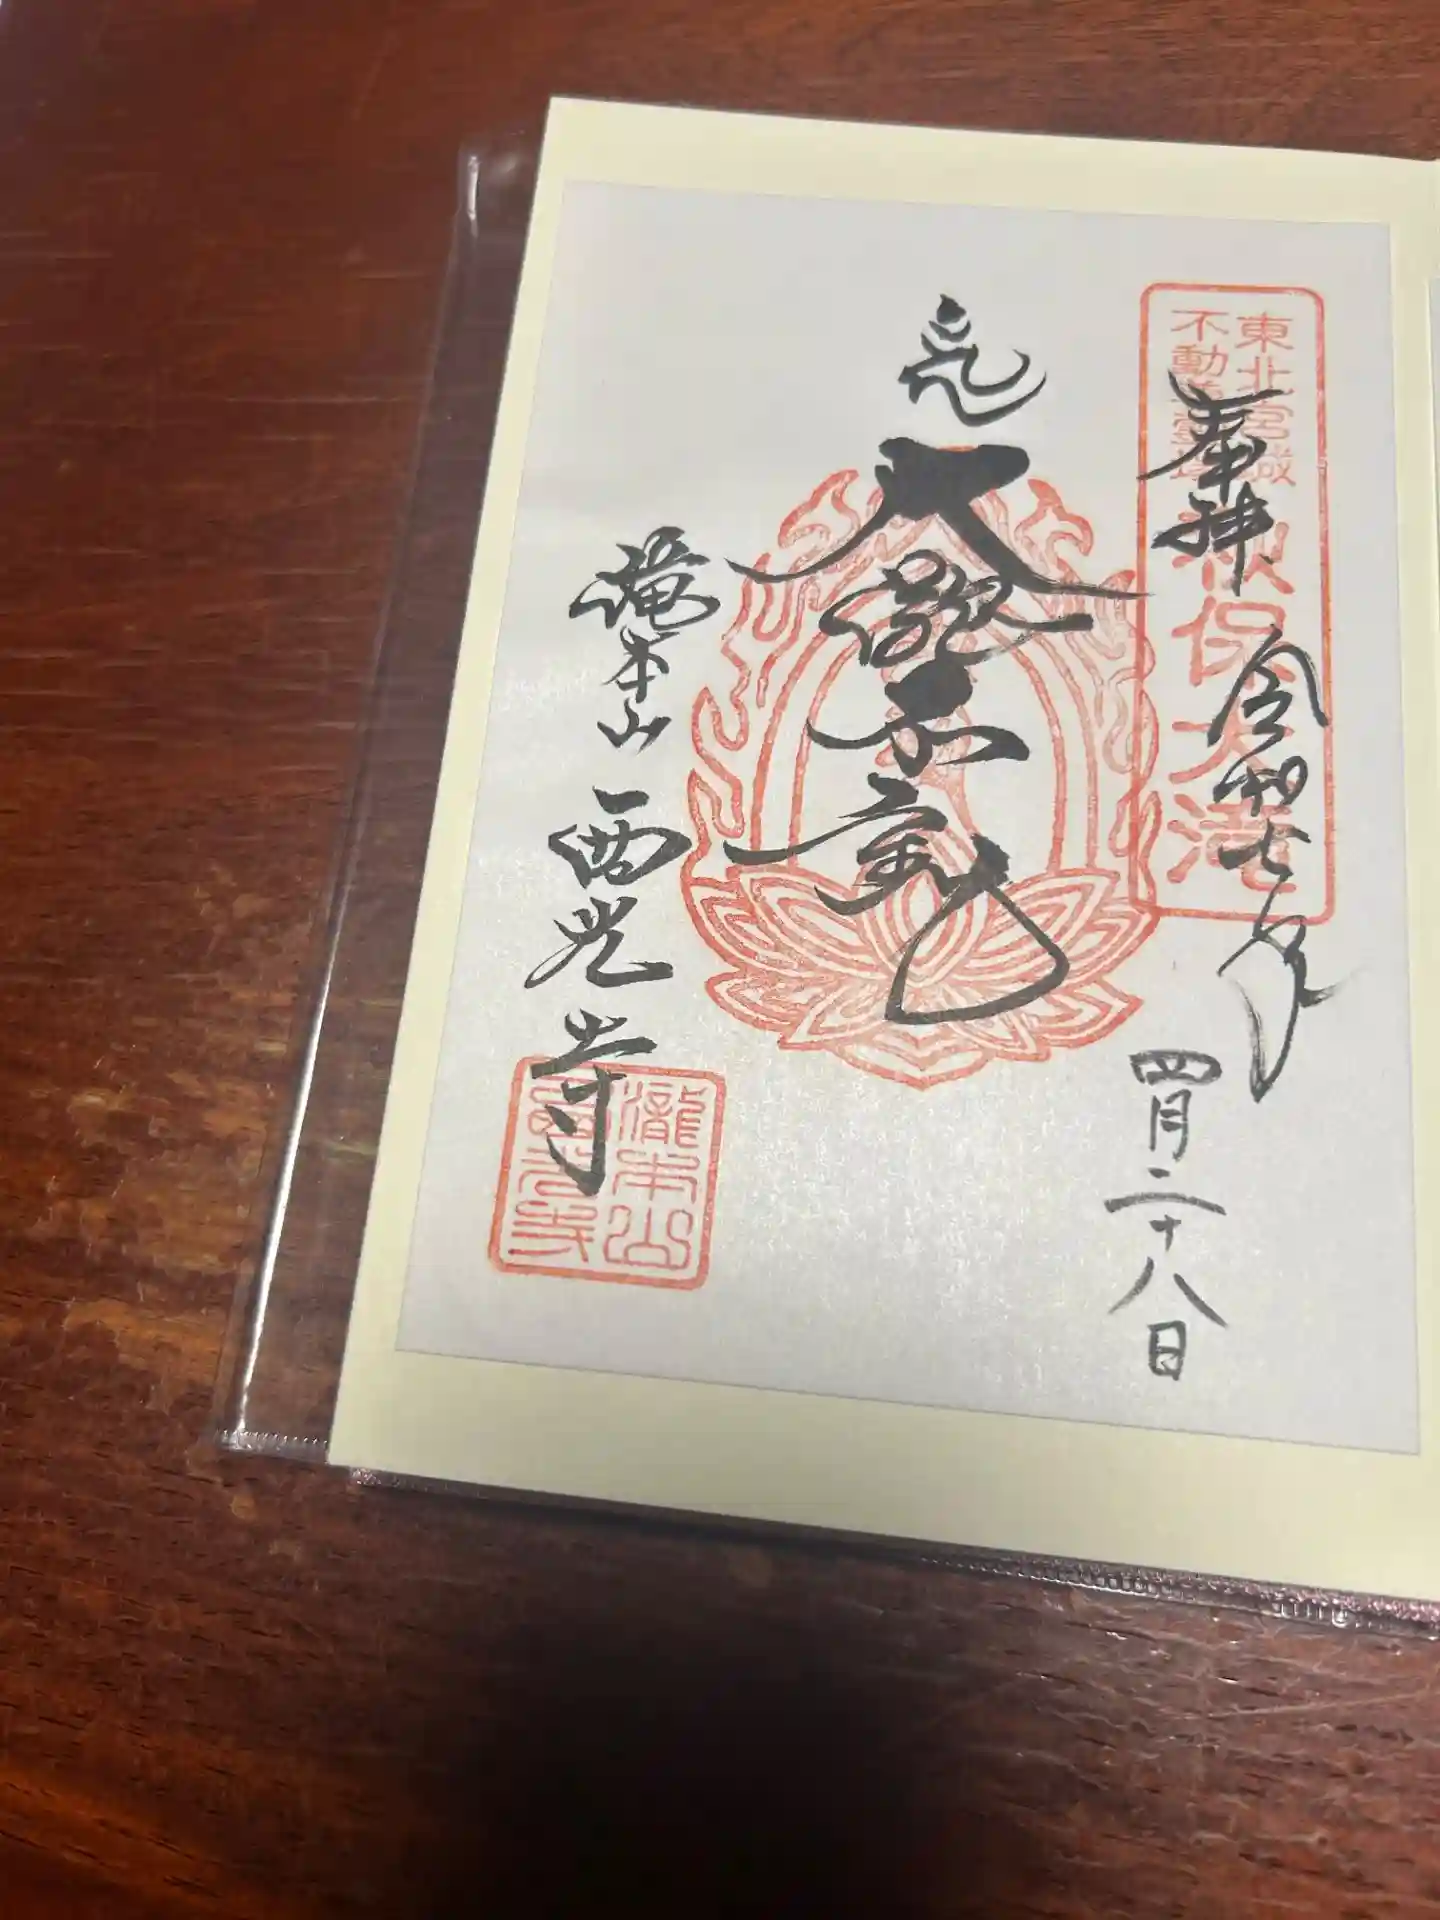 奉拝
令和七年
四月二十八日
東北宮城
不動尊霊場
秋保大滝
大瀧不動
滝本山
西光寺
瀧本山
西光寺